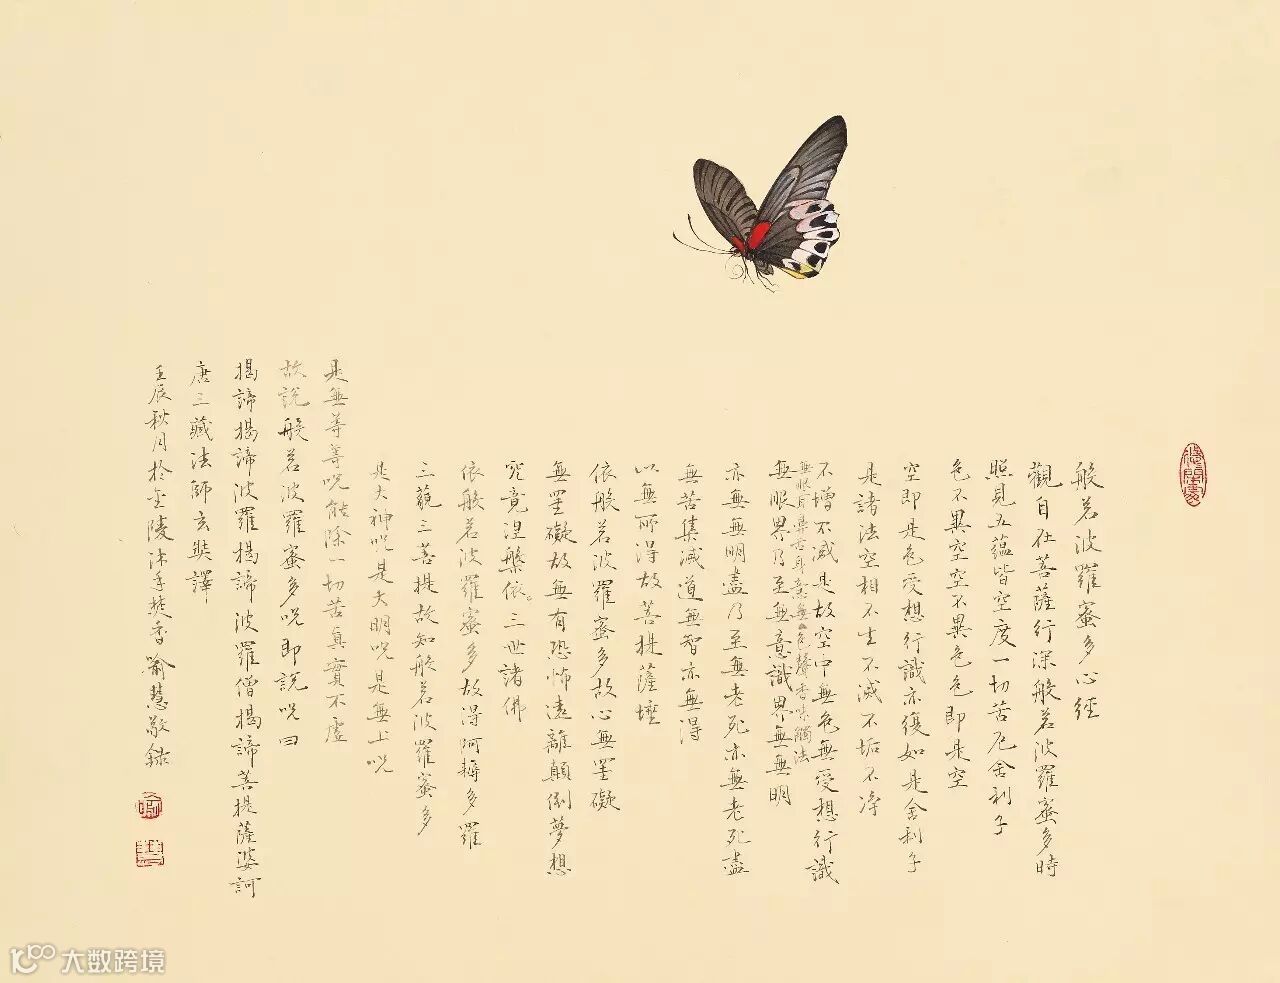 般若波羅蜜多心經
觀自在菩薩行深般若波羅蜜多時
照見五蘊皆空度一切苦厄舍利子
色不異空空不異色色即是空
空即是色受想行識亦復如是舍利子
是諸法空相不生不滅不垢不淨
不增不減是故空中無色無受想行識
無眼耳鼻舌身意無色聲香味觸法
無眼界乃至無意識界無無明
亦無無明盡乃至無老死亦無老死盡
無苦集滅道無智亦無得
以無所得故菩提薩埵
依般若波羅蜜多故心無罣礙
無罣礙故無有恐怖遠離顛倒夢想
究竟涅槃依三世諸佛
依般若波羅蜜多故得阿耨多羅
三藐三菩提故知般若波羅蜜多
是大神咒是大明咒是無上咒
是無等等咒能除一切苦真實不虛
故說般若波羅蜜多咒即說咒曰
揭諦揭諦波羅揭諦波羅僧揭諦菩提薩婆訶
唐三藏法師玄奘譯
壬辰秋月於金陵沐手焚香喻慧敬錄
大数跨境